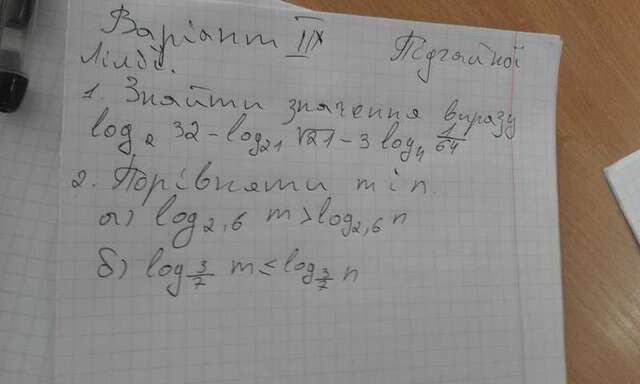 Варіант III
Підгайної
Лілії.
1. Знайти значення виразу
log₂ 32 - log₂₁ √21 - 3 log₄ 1/64
2. Порівняти m і n.
а) log₂,₆ m > log₂,₆ n
б) log 3/7 m ≤ log 3/7 n